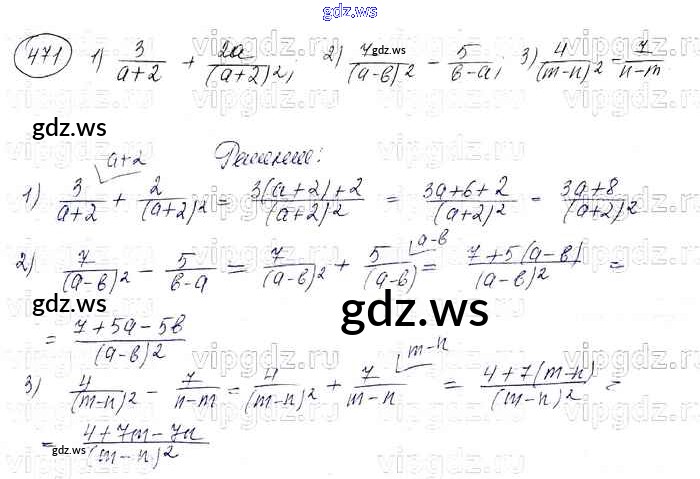 gdz.ws
471 1) 3/(a+2) + 2a/(a+2)²; 2) 7/(a-b)² - 5/(b-a); 3) 4/(m-n)² = 7/(n-m)
gdz.ws
a+2 Решение:
1) 3/(a+2) + 2/(a+2)² = (3(a+2)+2)/(a+2)² = (3a+6+2)/(a+2)² = (3a+8)/(a+2)²
2) 7/(a-b)² - 5/(b-a) = 7/(a-b)² + 5/(a-b) a-b = (7+5(a-b)/(a-b)² =
gdz.ws
gdz.ws
= (7+5a-5b)/(a-b)²
3) 4/(m-n)² - 7/(n-m) = 4/(m-n)² + 7/(m-n) m-n = (4+7(m-n)/(m-n)² =
= (4+7m-7n)/(m-n)²
gdz.ws
gdz.ws
vipgdz.ru